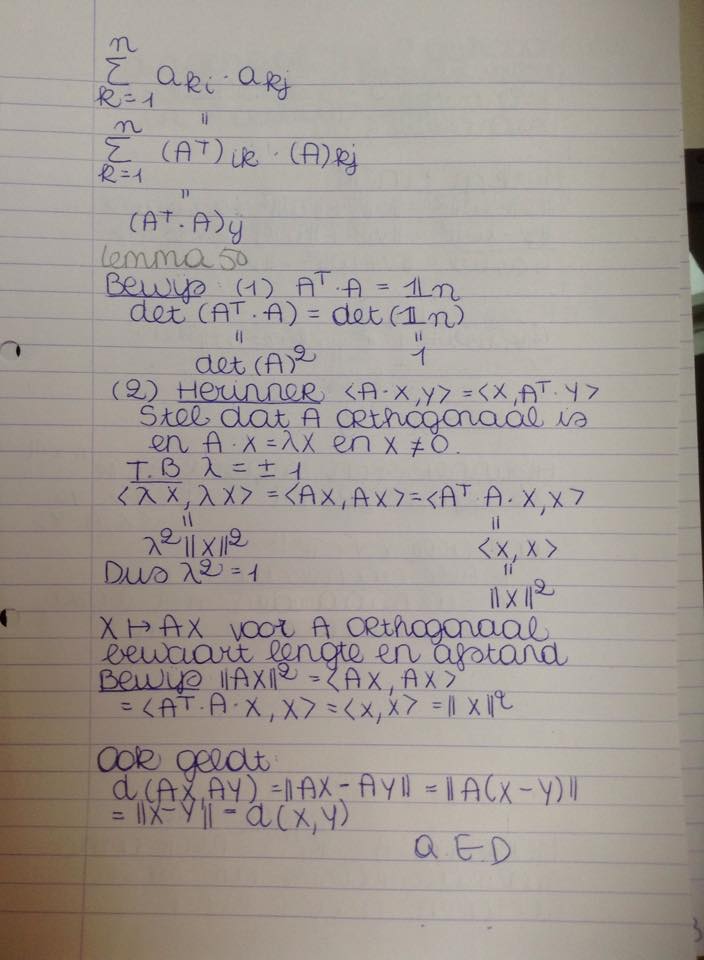 n
Σ a_ki · a_kj
k=1
"
n
Σ (A^T)_ik · (A)_kj
k=1
"
(A^T · A)_ij
Lemma 50
Bewijs: (1) A^T · A = 𝟙n
det (A^T · A) = det (𝟙n)
" "
det (A)^2 1
(2) Herinner ⟨A · X, Y⟩ = ⟨X, A^T · Y⟩
Stel dat A orthogonaal is
en A · X = λX en X ≠ 0.
T.B λ = ± 1
⟨λX, λX⟩ = ⟨AX, AX⟩ = ⟨A^T · A · X, X⟩
" "
λ^2 ||X||^2 ⟨X, X⟩
Dus λ^2 = 1 "
||X||^2
X ↦ AX voor A orthogonaal
bewaart lengte en afstand
Bewijs ||AX||^2 = ⟨AX, AX⟩
= ⟨A^T · A · X, X⟩ = ⟨X, X⟩ = ||X||^2
Ook geldt:
d(AX, AY) = ||AX - AY|| = ||A(X - Y)||
= ||X - Y|| = d(X, Y)
Q.E.D